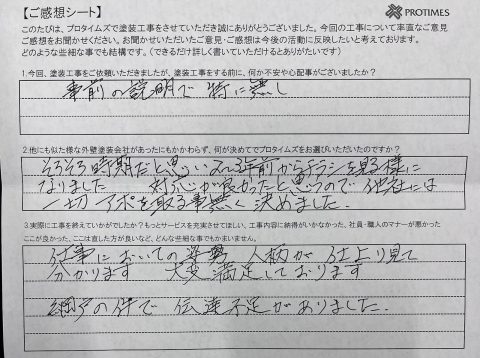 【ご感想シート】
PROTIMES
このたびは、プロタイムズで塗装工事をさせていただき誠にありがとうございました。今回の工事について率直なご意見
ご感想をお聞かせください。お聞かせいただいたご意見・ご感想は今後の活動に反映したいと考えております。
どのような些細な事でも結構です。(できるだけ詳しく書いていただけるとありがたいです)
1.今回、塗装工事をご依頼いただきましたが、塗装工事をする前に、何か不安や心配事がございましたか?
事前の説明で特に無し
2.他にも似た様な外壁塗装会社があったにもかかわらず、何が決めてでプロタイムズをお選びいただいたのですか?
そろそろ時期だと思い 2〜3年前からチラシを見る様に
なりました 対応が良かったと思うので 他社には
一切 アポを取る事無く 決めました.
3.実際に工事を終えていかがでしたか?もっとサービスを充実させてほしい、工事内容に納得がいかなかった、社員・職人のマナーが悪かった
ここが良かった、ここは直した方が良いなど、どんな些細な事でもかまいません。
仕事においての姿勢 人柄が 仕上り見て
分かります 大変満足しております
網戸の件で 伝達不足がありました.